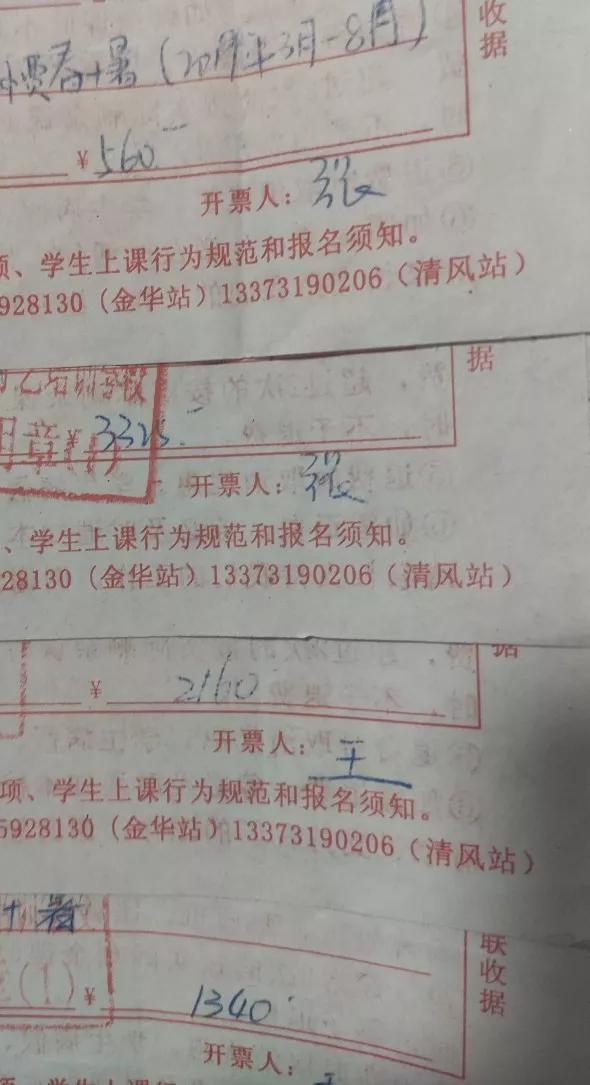 费春+暑(2019年3月-8月)
收据
¥560
开票人:张
项、学生上课行为规范和报名须知。
5928130(金华站)13373190206(清风站)
据
用章(1)¥3325.
开票人:张
、学生上课行为规范和报名须知。
928130(金华站)13373190206(清风站)
据
¥2160
开票人:王
项、学生上课行为规范和报名须知。
5928130(金华站)13373190206(清风站)
+暑
联收据
(1)¥1340
开票人: